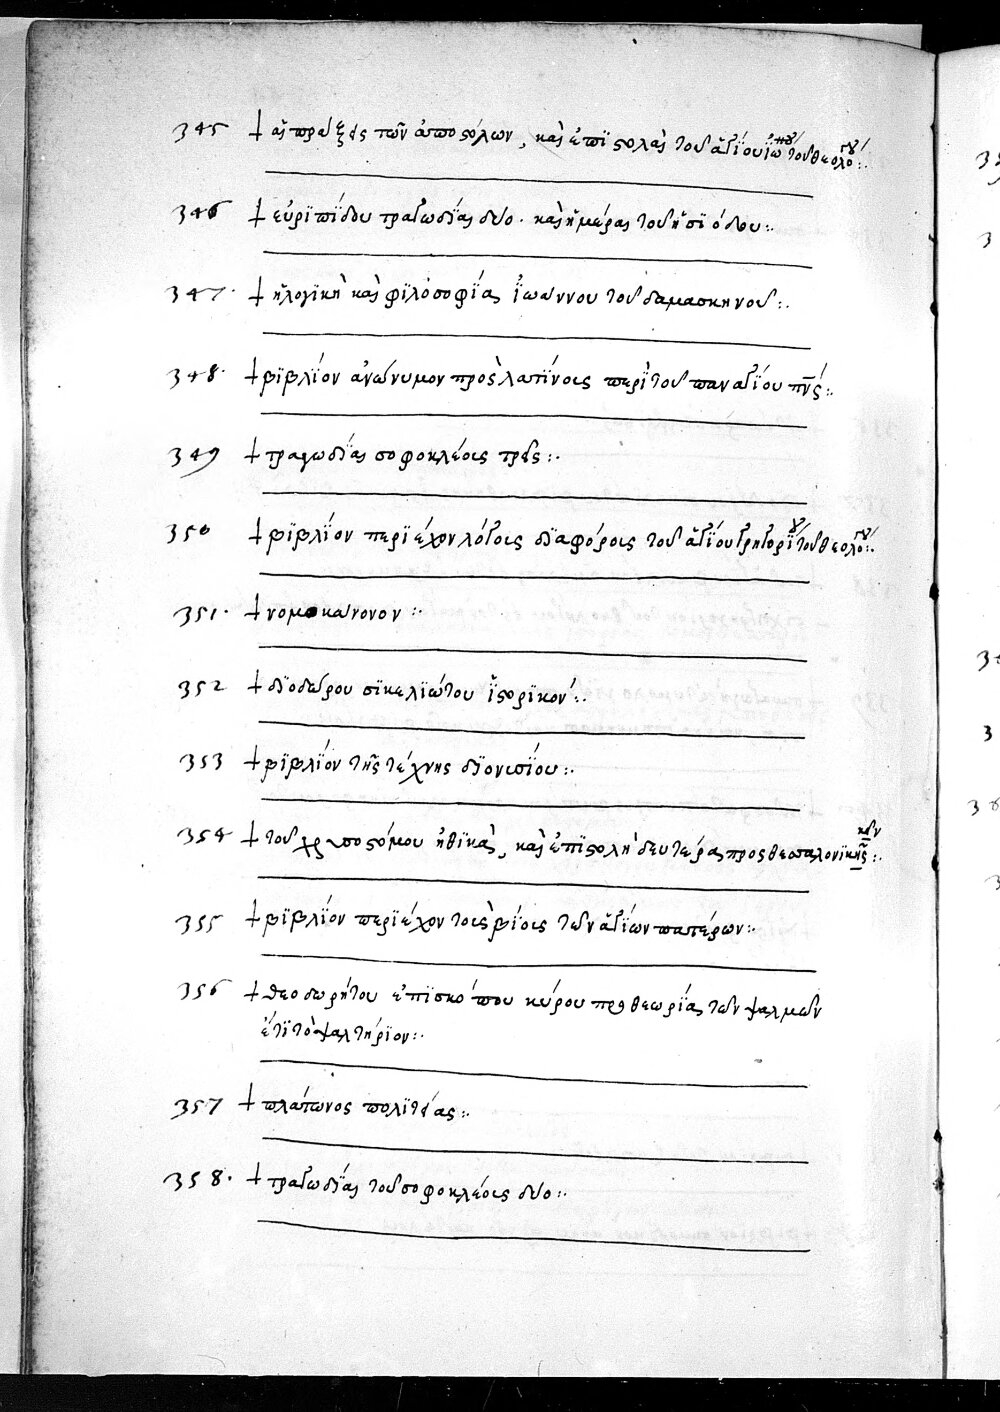 345 + αἱ πράξεις τῶν ἀποστόλων, καὶ ἐπιστολαὶ τοῦ ἁγίου ἰω τοῦ θεολόγου:.
346 + εὐριπίδου τραγωδίας δύο. καὶ ἡμέρας τοῦ ἡσιόδου:.
347. + ἡ λογικὴ καὶ φιλοσοφίας ἰωάννου τοῦ δαμασκηνοῦ:.
348. + βιβλίον ἀνώνυμον πρὸς λατίνοις περὶ τοῦ παναγίου πνς:.
349 + τραγωδίας σοφοκλέοις τρεῖς:.
350 + βιβλίον περιέχον λόγοις διαφόροις τοῦ ἁγίου γρηγορίου τοῦ θεολόγου:.
351. + νομοκάνονον:.
352 + διοδώρου σικελιώτου ἱστορικόν:.
353 + βιβλίον τῆς τέχνης διονισίου:.
354 + τοῦ χρυσοστόμου ἠθικὰς, καὶ ἐπιστολὴ δευτέρας προς θεσαλονικῆς:.
355 + βιβλίον περιέχον τοις βίοις τῶν ἁγίων πατέρων:.
356 + θεοδωρήτου ἐπισκόπου κύρου προθεωρίας τῶν ψαλμῶν
ἐτὶ τὸ ψαλτήριον:.
357 + πλάτωνος πολιτείας:.
358. + τραγωδίας τοῦ σοφοκλέοις δύο:.